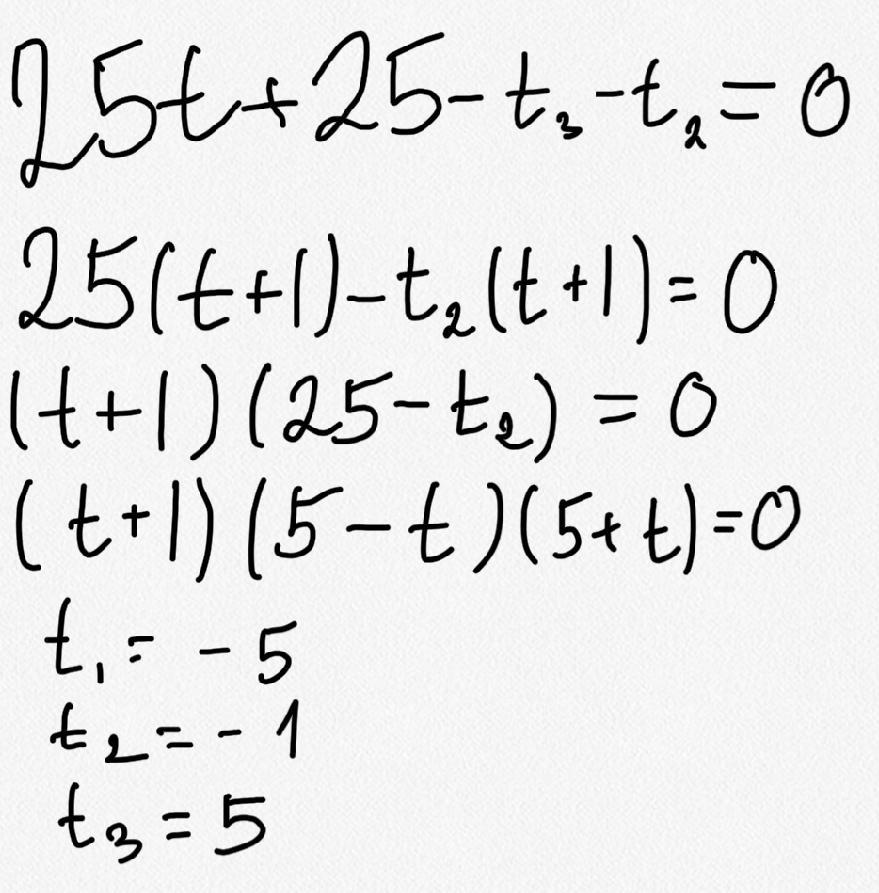 25t+25-t₃-t₂=0
25(t+1)-t₂(t+1)=0
(t+1)(25-t₂)=0
(t+1)(5-t)(5+t)=0
t₁=-5
t₂=-1
t₃=5